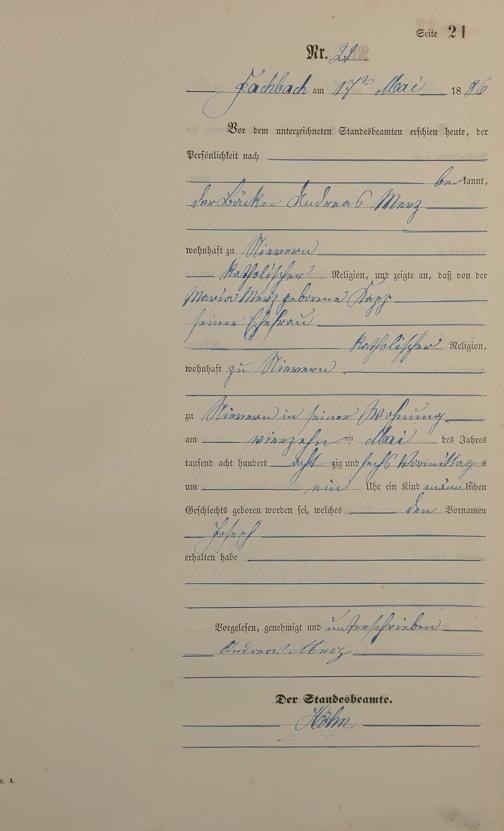 Seite 21
Nr. 21
Fachbach am 17ten Mai 1886
Vor dem unterzeichneten Standesbeamten erschien heute, der
Persönlichkeit nach
bekannt,
der Bäcker Andreas Merz
wohnhaft zu Nievern
katholischer Religion, und zeigte an, daß von der
Maria Merz geborene Kapp
seiner Ehefrau
katholischer Religion,
wohnhaft zu Nievern
zu Nievern in seiner Wohnung
am vierzehn ten Mai des Jahres
tausend acht hundert acht zig und sechs Vormittags
um ein Uhr ein Kind männlichen
Geschlechts geboren worden sei, welches den Vornamen
Joseph
erhalten habe
Vorgelesen, genehmigt und unterschrieben
Andreas Merz
Der Standesbeamte.
Höhn